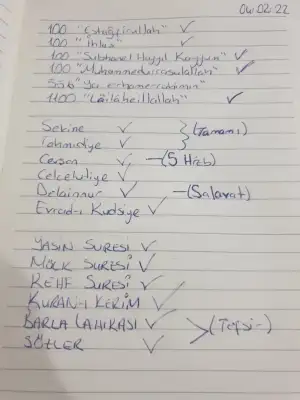 04.02.22
100 "Estağfirullah" ✓
100 "İhlas" ✓
100 "Subhanel Hayyil Kayyum" ✓
100 "Muhammedurrasulallah" ✓
556 "Ya erhamerrahimin"
1100 "Lailaheillallah" ✓
Sekine ✓
Tahmidiye ✓ (Tamamı)
Cevşen ✓ (5 Hizb)
Celcelutiye ✓
Delainnur ✓ (Salavat)
Evrad-ı Kudsiye ✓
YASIN SURESİ ✓
MÜLK SURESİ ✓
KEHF SURESİ ✓
KURAN-I KERİM ✓
BARLA LAHIKASI ✓
SÖZLER ✓